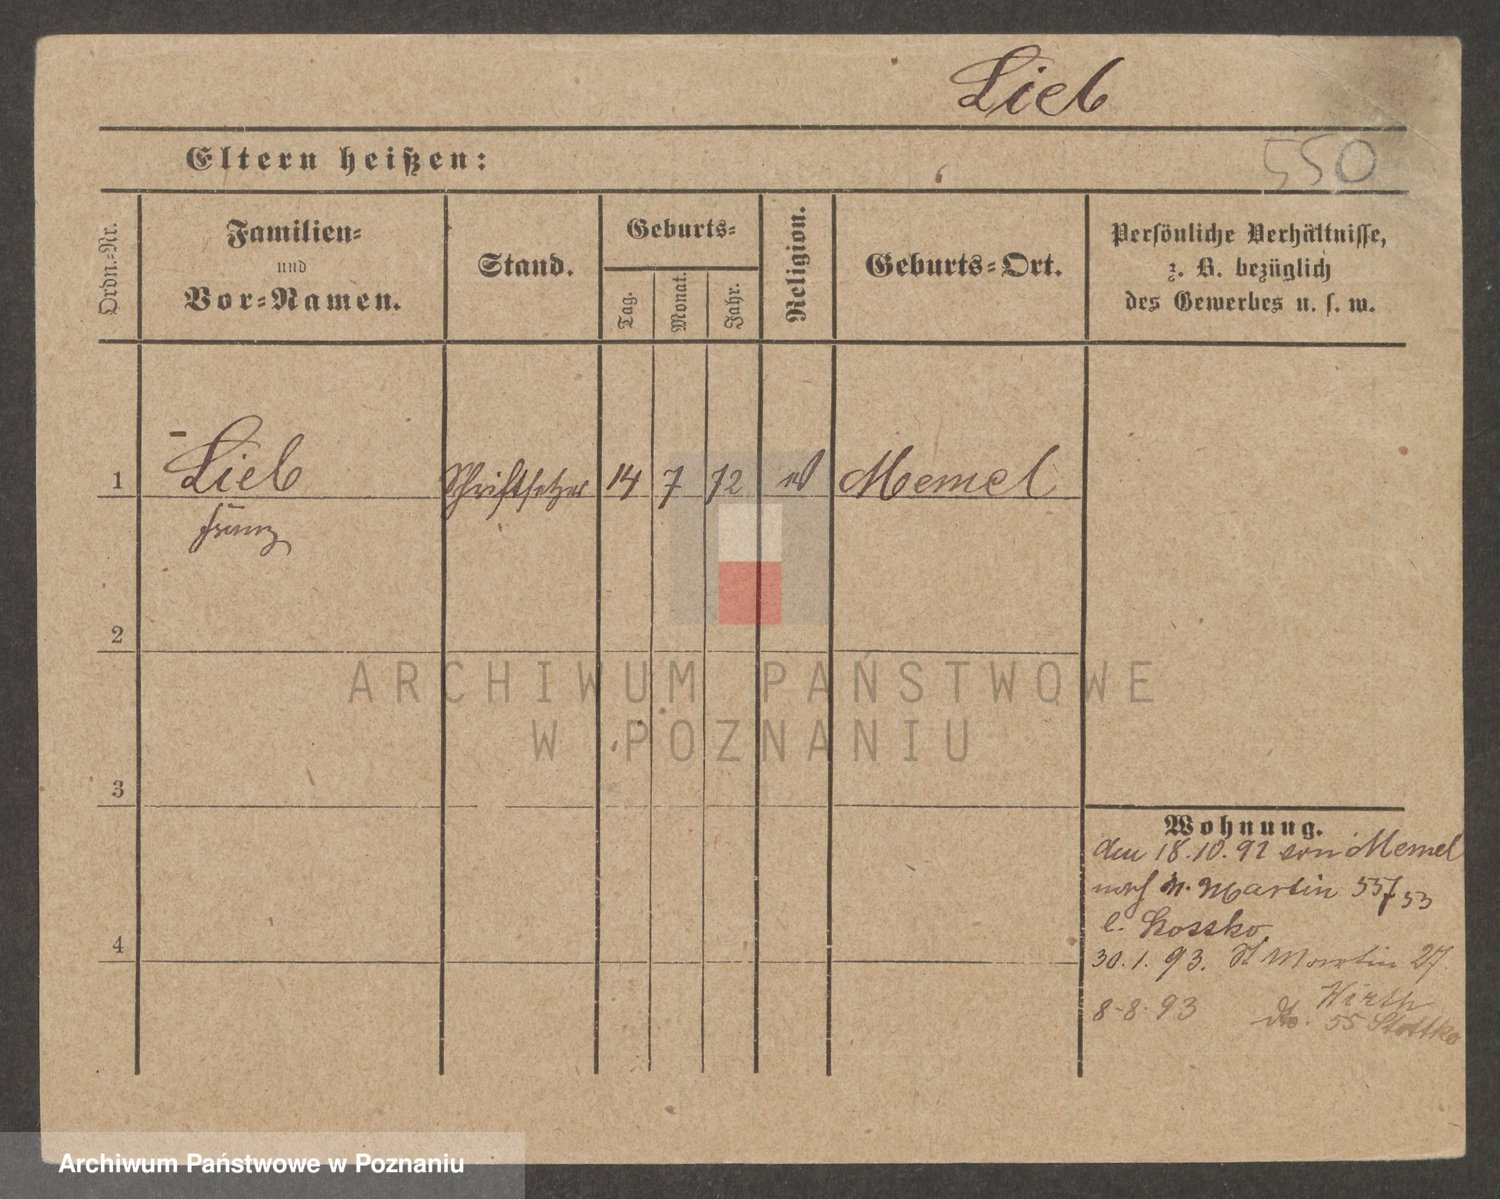 Lieb
550
Eltern heißen:
Ordn.-Nr.
Familien-
und
Vor-Namen.
Stand.
Geburts-
Tag.
Monat.
Jahr.
Religion.
Geburts-Ort.
Persönliche Verhältnisse,
z. B. bezüglich
des Gewerbes u. s. w.
1
Lieb
Franz
Schriftsetzer
14
7
72
Memel
2
3
4
Wohnung.
den 18.10.92 von Memel
nach St. Martin 55/53
30.1.93. St Martin 27.
Wirth
8-8-93 dto. 55
ARCHIWUM PAŃSTWOWE
W POZNANIU
Archiwum Państwowe w Poznaniu